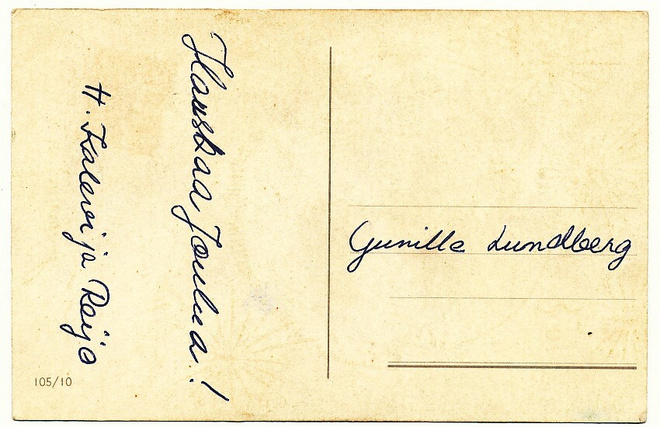 Hauskaa Joulua!
H. Kalevi ja Reijo
Gunilla Lundberg
105/10